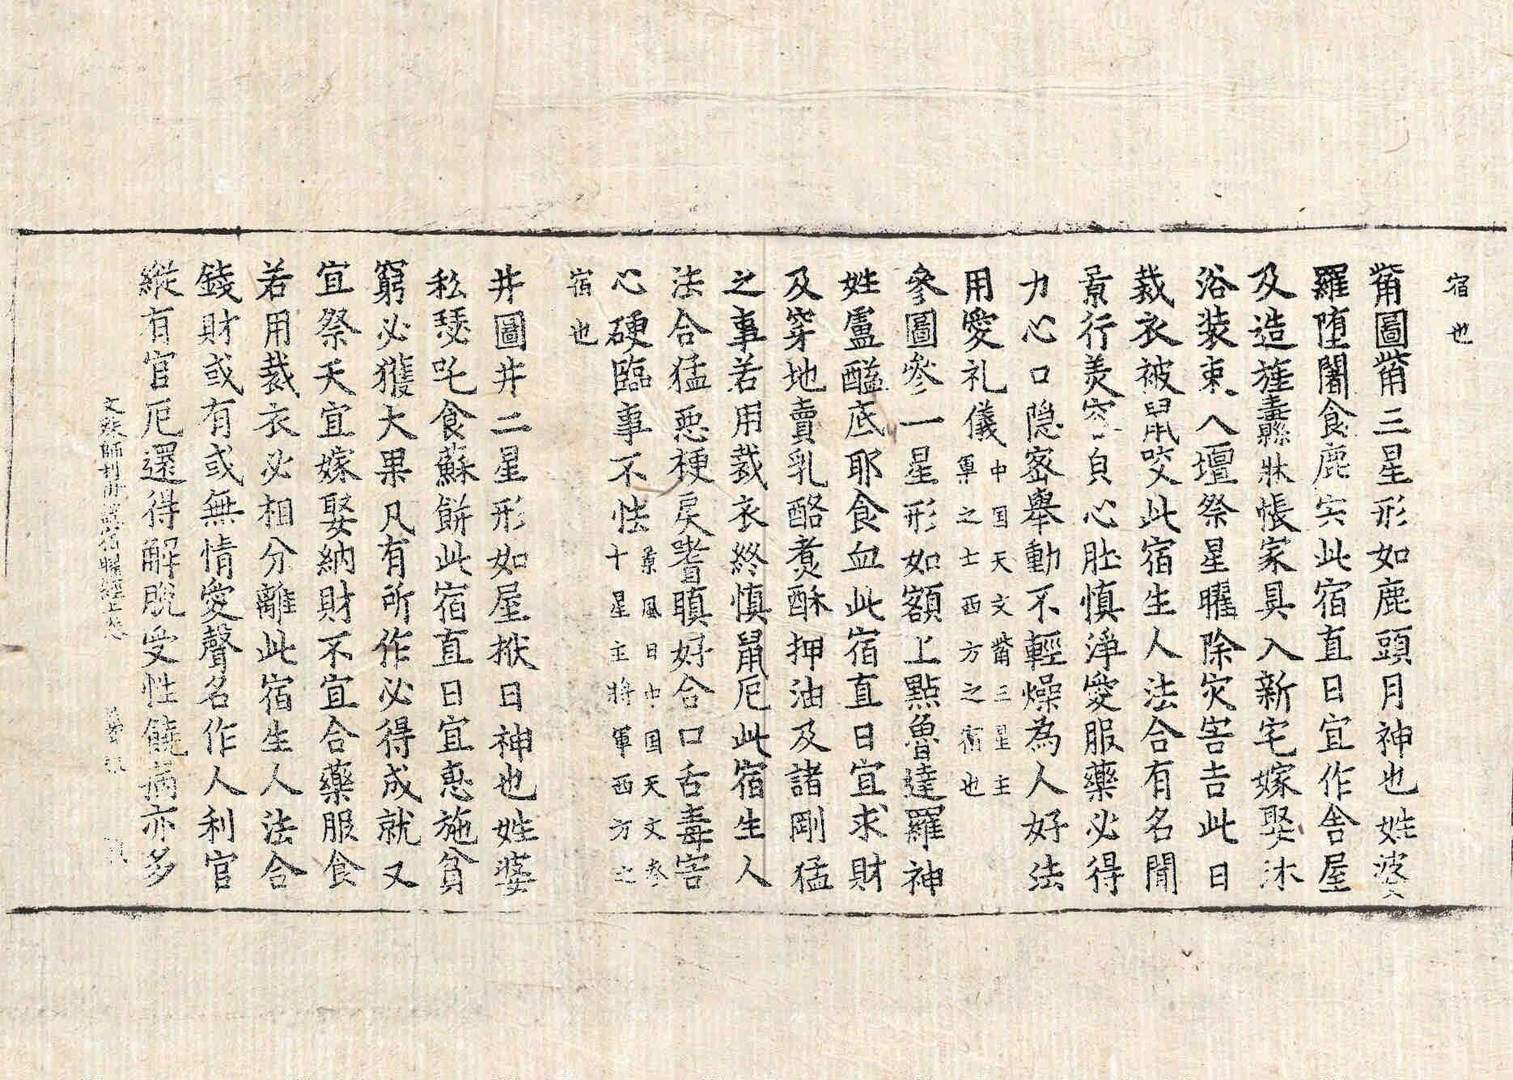 宿也
觜圖觜三星形如鹿頭月神也姓婆
羅堕闍食鹿宍此宿直日宜作舍屋
及造旌纛牀帳家具入新宅嫁娶沐
浴装束入壇祭星曜除灾害吉此日
裁衣被鼠咬此宿生人法合有名聞
景行羙容皃心肚慎淨愛服藥必得
力心口隐宻舉動不輕燥為人好法
用愛礼儀中国天文觜三星主軍之士西方之宿也
參圖參一星形如額上點魯達羅神
姓盧醯底耶食血此宿直日宜求財
及穿地賣乳酪煑酥押油及諸剛猛
之事若用裁衣終慎鼠厄此宿生人
法合猛悪梗戾嗜瞋好合口舌毒害
心硬臨事不恠景風日中国天文參十星主將軍西方之
宿也
井圖井二星形如屋栿日神也姓婆
私瑟吒食蘇餅此宿直日宜惠施貧
窮必獲大果凡有所作必得成就又
宜祭天宜嫁娶納財不宜合藥服食
若用裁衣必相分離此宿生人法合
錢財或有或無情愛聲名作人利官
縱有官厄還得解脱受性饒病亦多
文殊師利所宿曜經上卷